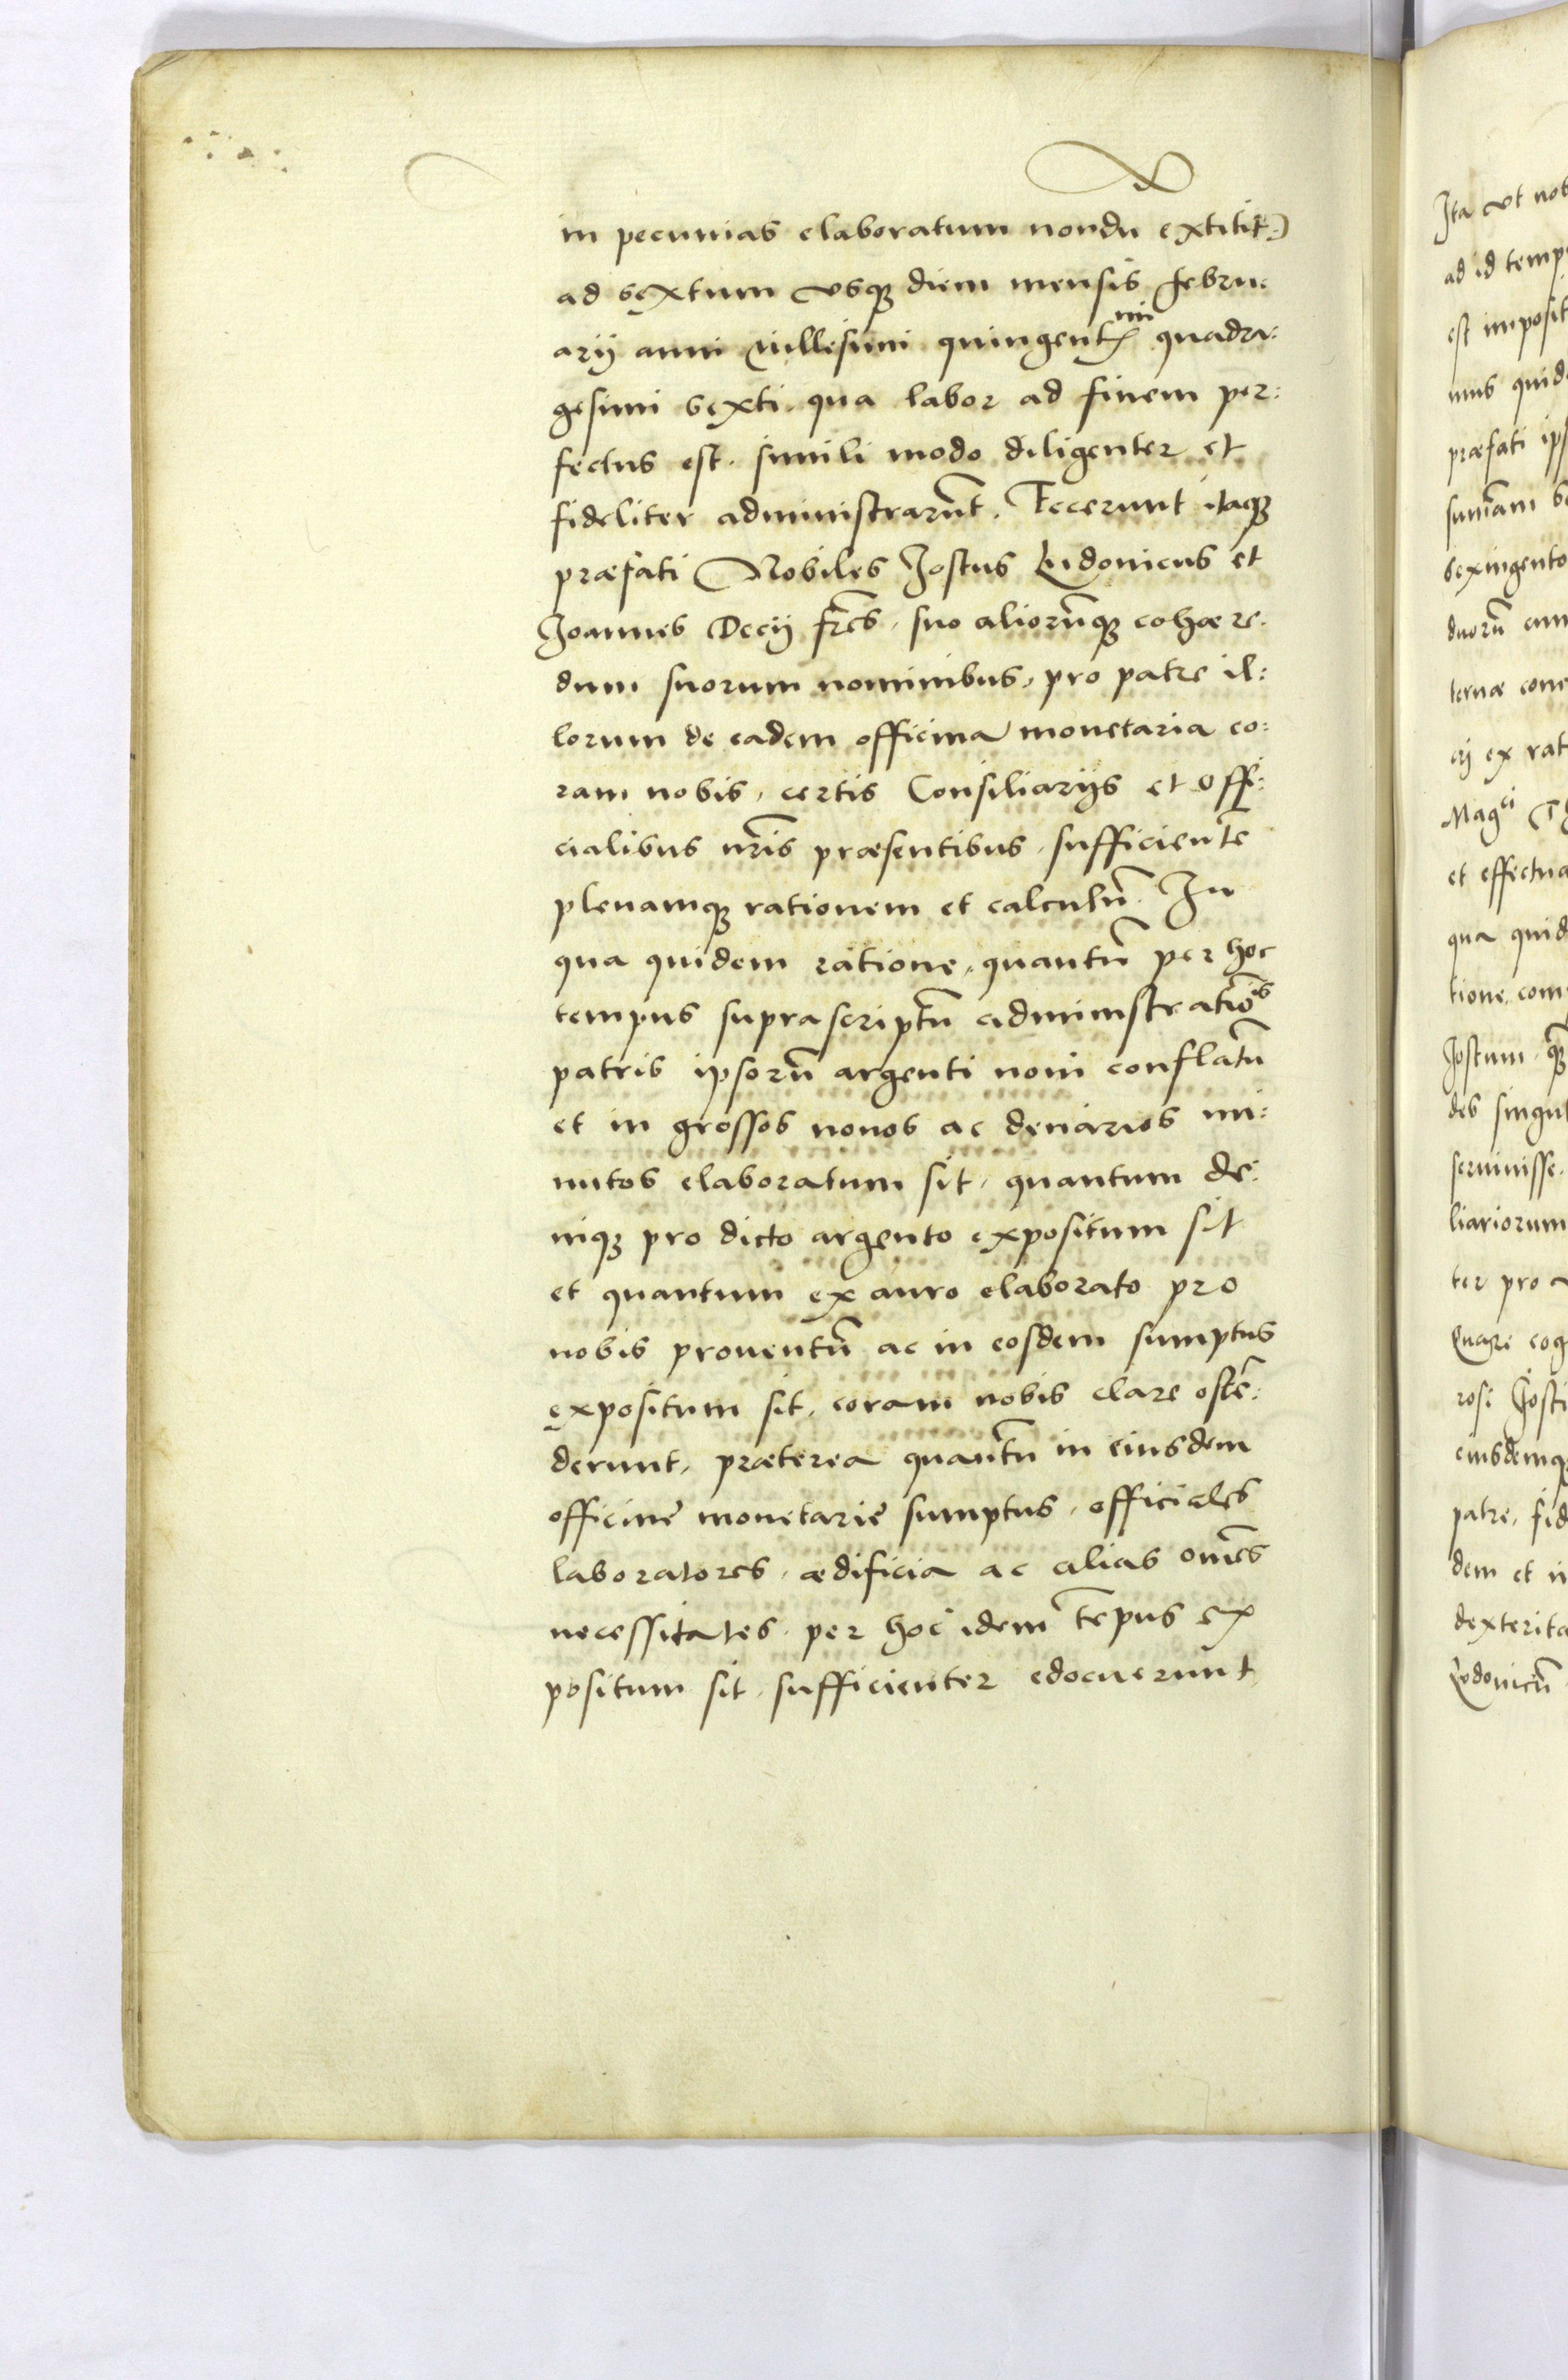 in pecunias elaboratum nondū extitit)
ad sextum usq diem mensis febru:
arij anni millesimi quingentmi quadra:
gesimi sexti qua labor ad finem per:
fectus est. simili modo diligenter et
fideliter administrarūt. Fecerunt itaq
præfati Nobiles Jostus Ludouicus et
Joannes Decij frēs, suo aliorūq cohære:
dum suorum nominibus, pro patre il:
lorum de eadem officina monetaria co:
ram nobis, certis Consiliarijs et offi:
cialibus nrīs præsentibus, sufficientē
plenamq rationem et calculū. In
qua quidem ratione, quantū per hoc
tempus suprascriptū administratiōs
patris ipsorū argenti noui conflatū
et in grossos nouos ac denarios mi:
nutos elaboratum sit, quantum de:
niq pro dicto argento expositum sit
et quantum ex auro elaborato pro
nobis prouentū ac in eosdem sumptus
expositum sit, coram nobis clare ostē:
derunt, præterea quantū in eiusdem
officine monetarie sumptus, officiales
laboratores, ædificia ac alias omēs
necessitates per hoc idem tēpus ex
positum sit, sufficienter edocuerunt
Ita ut nob
ad id temp
est imposit
nus quid
præfati ips
sumām
sexingento
duorū
ternæ
ex rat
Magci
et effectua
qua quid
tione com
Jostum
des singul
seruiuisse.
liariorum
ter pro
Quare cog
rosi Josti
eiusdemq
patre, fid
dem et in
dexterita
Ludouicū